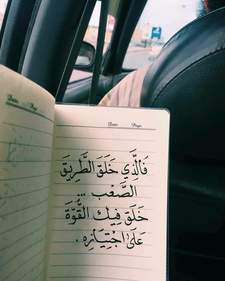 Date: Page:
Date: Page:
فَالَّذِي خَلَقَ الطَّرِيقَ
الصَّعْب ...
خَلَقَ فِيكَ الْقُوَّةَ
عَلَىٰ اجْتِيَازِهِ .